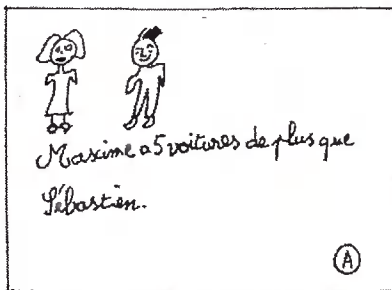 Maxime a 5 voitures de plus que
Sébastien.
A